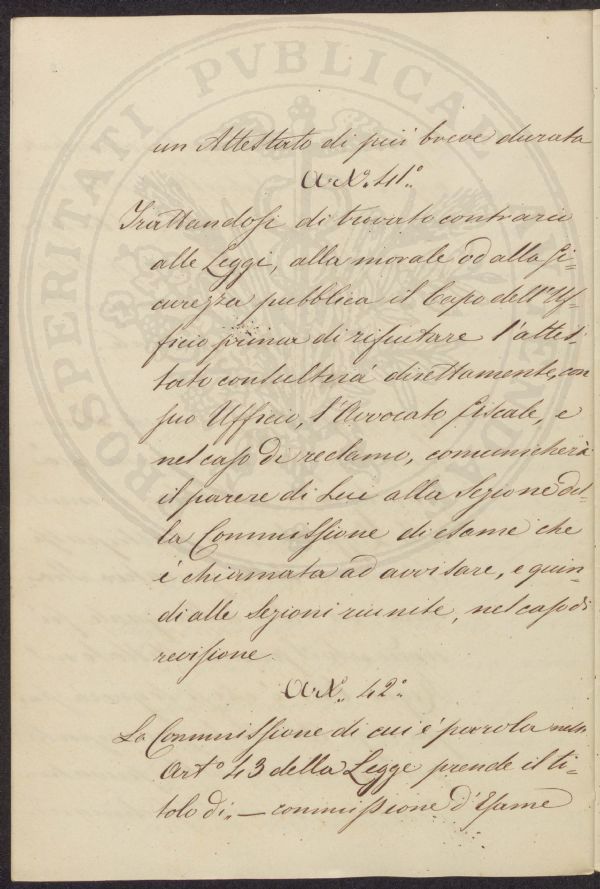 un Attestato di più breve durata
Art. 41°
Trattandosi di trovato contrario
alle Leggi, alla morale od alla si-
curezza pubblica il Capo dell'Uf-
ficio prima di rifiutare l'attes-
tato consulterà direttamente, con
suo Ufficio, l'Avvocato fiscale, e
nel caso di reclamo, comunicherà
il parere di Lui alla Sezione del-
la Commissione di esame che
è chiamata ad avvisare, e quin-
di alle Sezioni riunite, nel caso di
revisione.
Art. 42°
La Commissione di cui è parola nell'
Art° 43 della Legge prende il ti-
tolo di „ — commissione d'Esame
PROSPERITATI PVBLICAE AVGENDAE